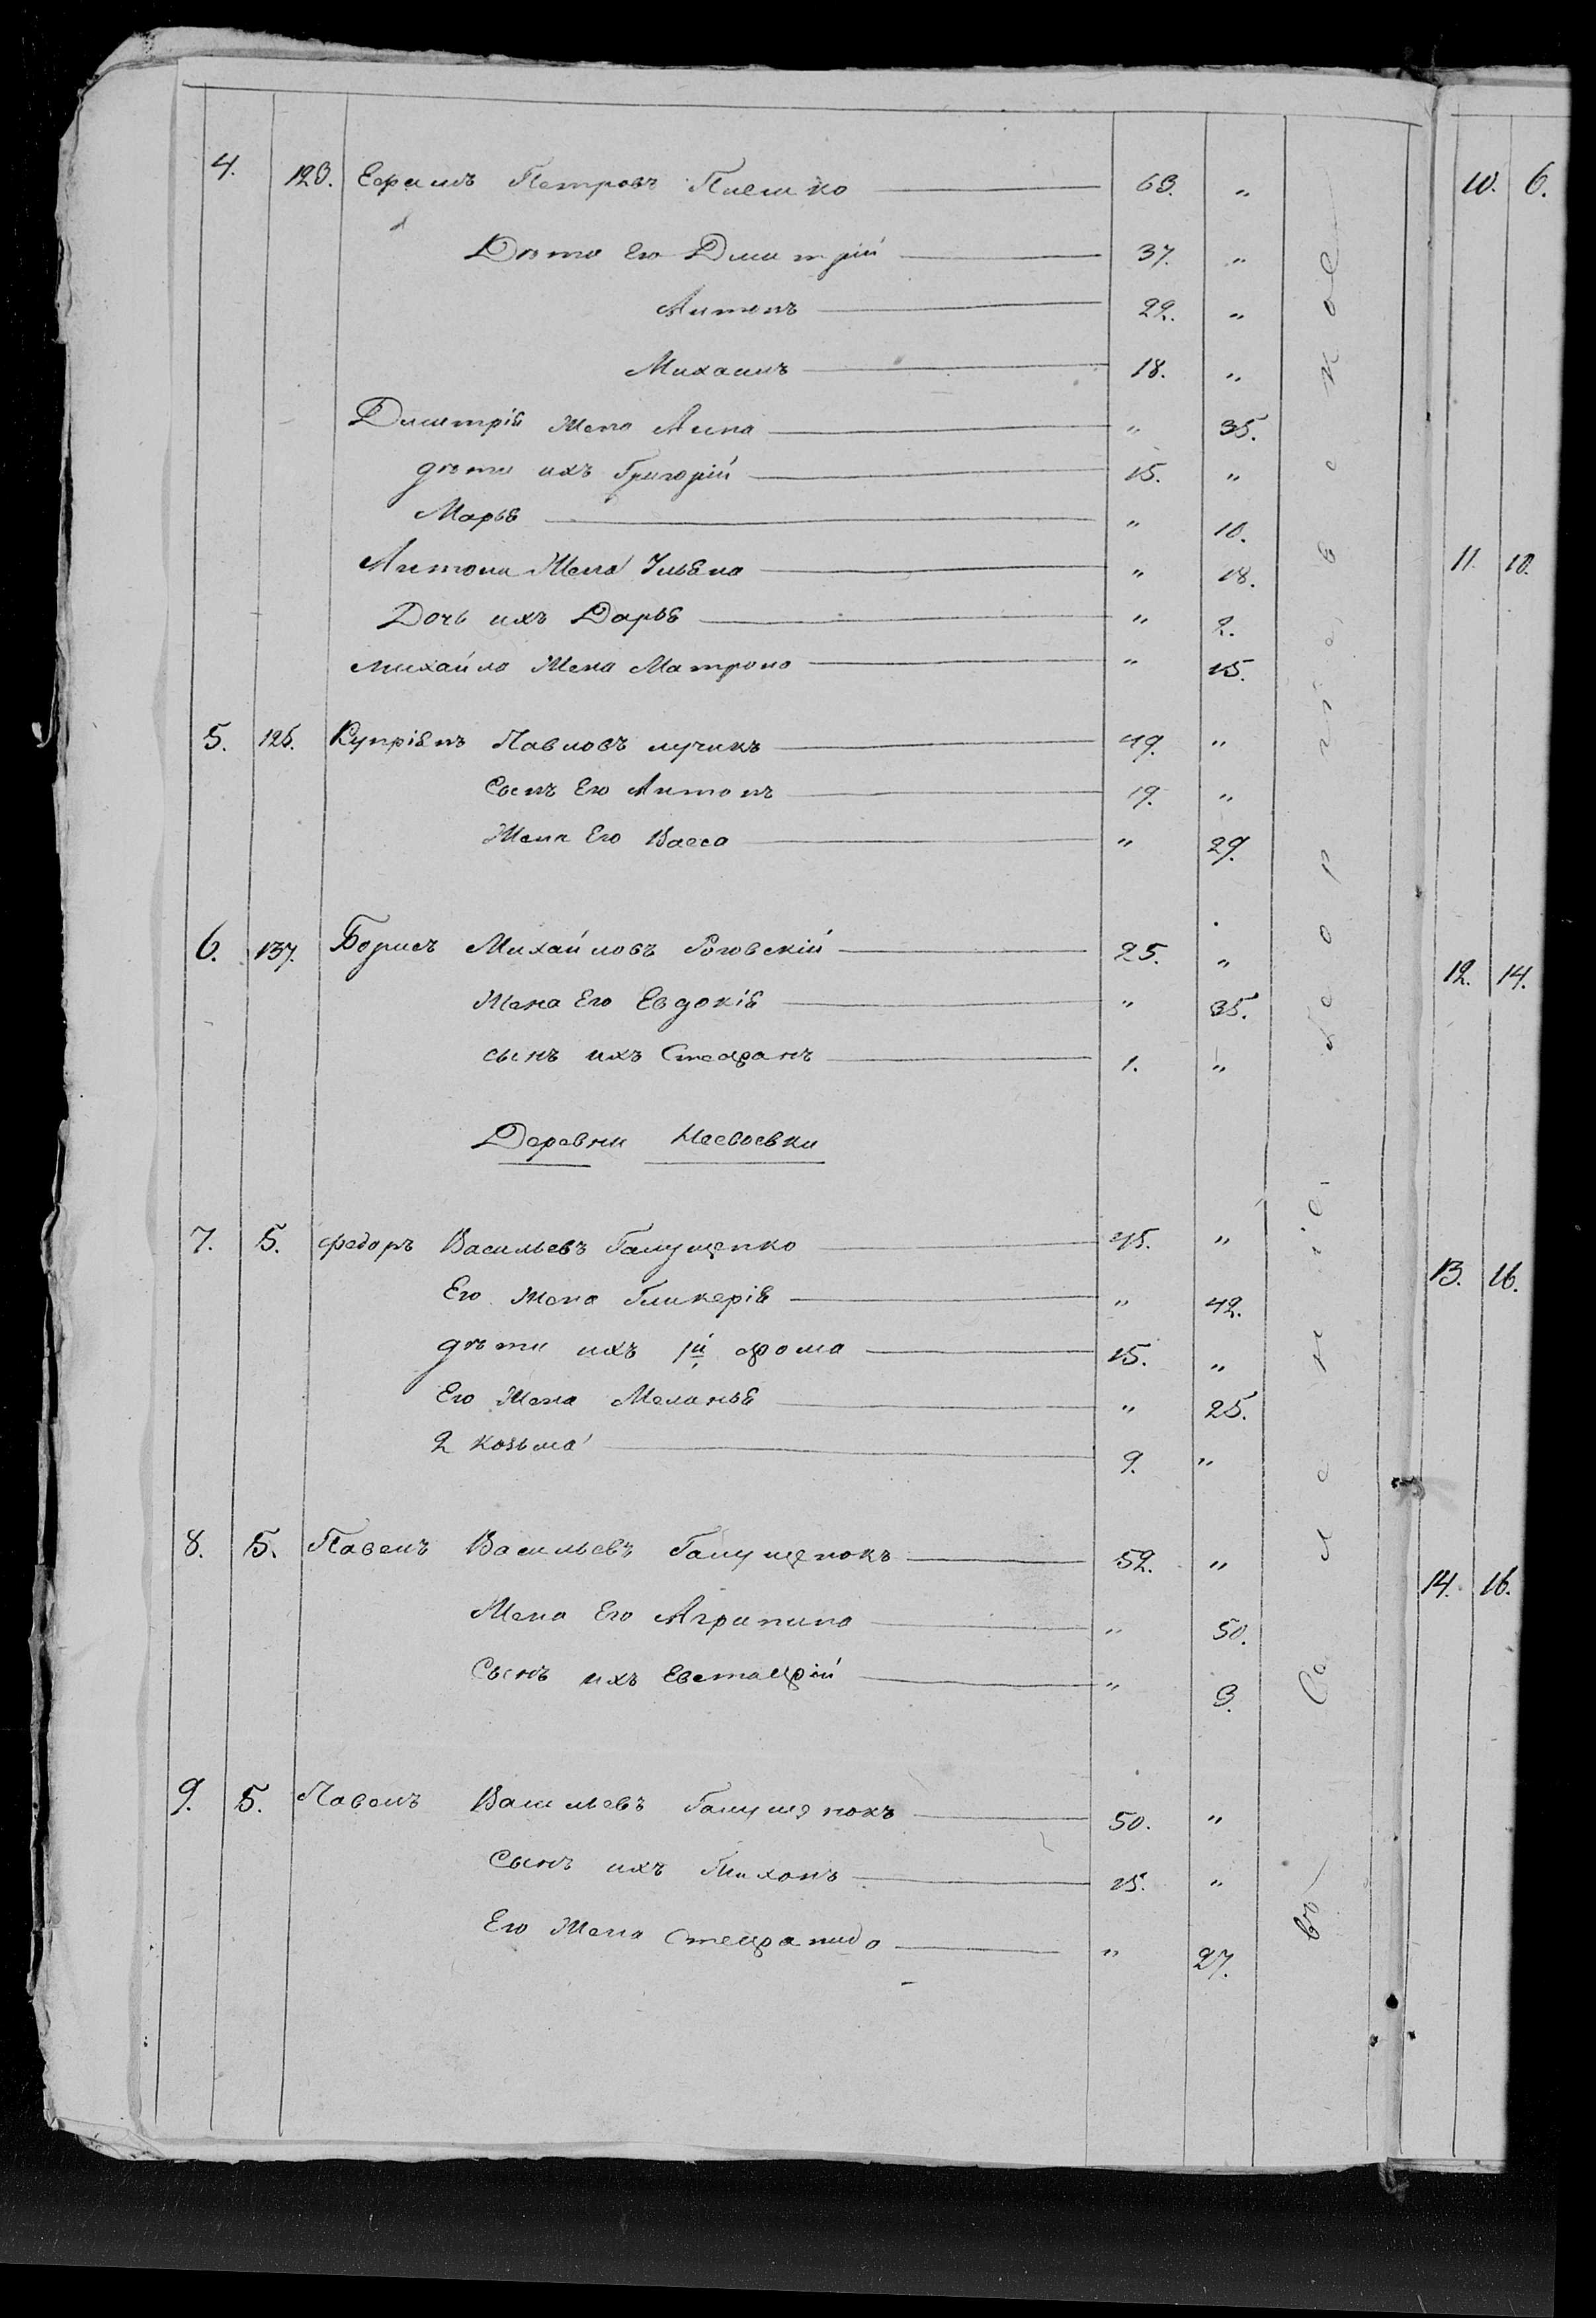 4. 123. Ефимъ Петровъ Плешко 63. "
Дѣти его Дмитрій 37. "
Антонъ 22. "
Михаилъ 18. "
Дмитрія жена Анна " 35.
дѣти ихъ Григорій 15. "
Марья " 10.
Антона Жена Ульяна " 18.
Дочь ихъ Дарья " 2.
михайла Жена Матрона " 15.
5. 125. Купріянъ Павловъ лучикъ 49. "
Сынъ Его Антонъ 19. "
Жена Его Васса " 29.
6. 137. Борисъ Михайловъ Роговскій 25. "
Жена Его Евдокія " 35.
сынъ ихъ Стефанъ 1. "
Деревни
7. 5. федоръ Васильевъ Галущенко 45. "
Его Жена Гликерія " 42.
дѣти ихъ 1й фома 15. "
Его Жена Меланья " 25.
2 козьма 9. "
8. 5. Павелъ Васильевъ Галущенокъ 52. "
Жена Его Агрипина " 50.
Сынъ ихъ Евстафій " 3.
9. 5. Павелъ Васильевъ Галущенокъ 50. "
Сынъ ихъ Тихонъ 15. "
Его Жена Стефанида " 27.
Въ Селеніе Новорг
10. 6.
11. 10.
12. 14.
13. 16.
14. 16.